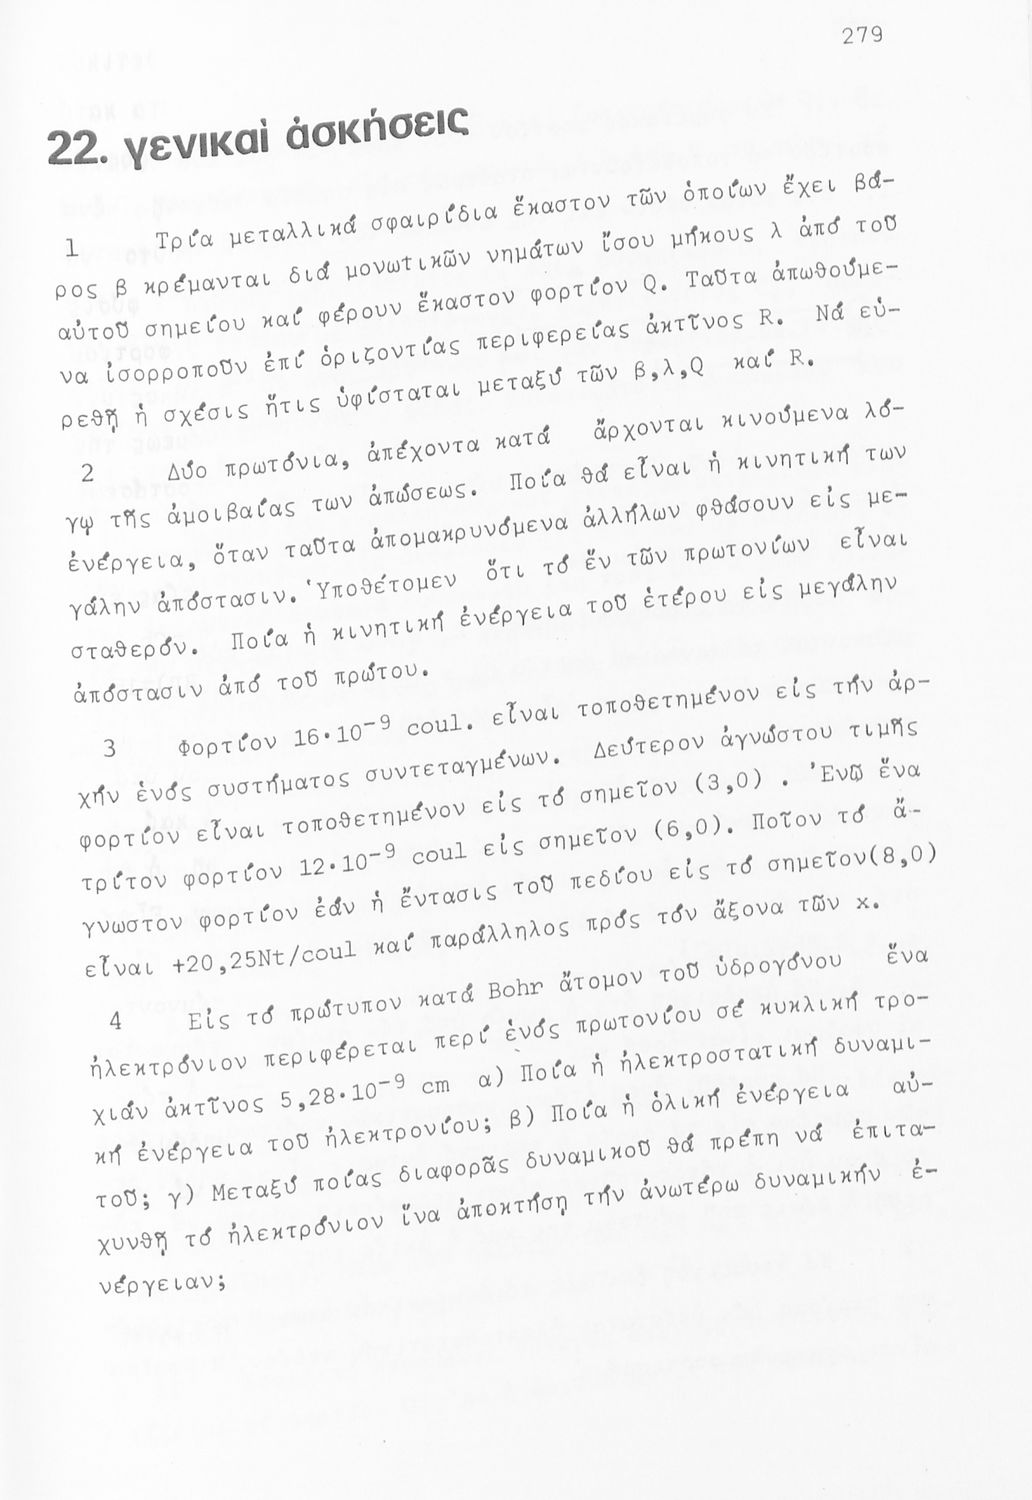 279
22. γενικαὶ ἀσκήσεις
1 Τρία μεταλλικά σφαιρίδια ἕκαστον τῶν ὁποίων ἔχει βά-
ρος β κρέμανται διά μονωτικῶν νημάτων ἴσου μήκους λ ἀπό τοῦ
αὐτοῦ σημείου καί φέρουν ἕκαστον φορτίον Q. Ταῦτα ἀπωθούμε-
να ἰσορροποῦν ἐπί ὁριζοντίας περιφερείας ἀκτῖνος R. Νά εὑ-
ρεθῇ ἡ σχέσις ἥτις ὑφίσταται μεταξύ τῶν β,λ,Q καί R.
2 Δύο πρωτόνια, ἀπέχοντα κατά ἄρχονται κινούμενα λό-
γψ τῆς ἀμοιβαίας των ἀπώσεως. Ποία θά εἶναι ἡ κινητική των
ἐνέργεια, ὅταν ταῦτα ἀπομακρυνόμενα ἀλλήλων φθάσουν εἰς με-
γάλην ἀπόστασιν. Ὑποθέτομεν ὅτι τό ἕν τῶν πρωτονίων εἶναι
σταθερόν. Ποία ἡ κινητική ἐνέργεια τοῦ ἑτέρου εἰς μεγάλην
ἀπόστασιν ἀπό τοῦ πρώτου.
3 Φορτίον 16·10⁻⁹ coul. εἶναι τοποθετημένον εἰς τήν ἀρ-
χήν ἑνός συστήματος συντεταγμένων. Δεύτερον ἀγνώστου τιμῆς
φορτίον εἶναι τοποθετημένον εἰς τό σημεῖον (3,0) . Ἐνῶ ἕνα
τρίτον φορτίον 12·10⁻⁹ coul εἰς σημεῖον (6,0). Ποῖον τό ἄ-
γνωστον φορτίον ἐάν ἡ ἔντασις τοῦ πεδίου εἰς τό σημεῖον(8,0)
εἶναι +20,25Nt/coul καί παράλληλος πρός τόν ἄξονα τῶν x.
4 Εἰς τό πρώτυπον κατά Bohr ἄτομον τοῦ ὑδρογόνου ἕνα
ἠλεκτρόνιον περιφέρεται περί ἑνός πρωτονίου σέ κυκλική τρο-
χιάν ἀκτῖνος 5,28·10⁻⁹ cm α) Ποία ἡ ἠλεκτροστατική δυναμι-
κή ἐνέργεια τοῦ ἠλεκτρονίου; β) Ποία ἡ ὁλική ἐνέργεια αὐ-
τοῦ; γ) Μεταξύ ποίας διαφορᾶς δυναμικοῦ θά πρέπη νά ἐπιτα-
χυνθῇ τό ἠλεκτρόνιον ἵνα ἀποκτήσῃ τήν ἀνωτέρω δυναμικήν ἐ-
νέργειαν;